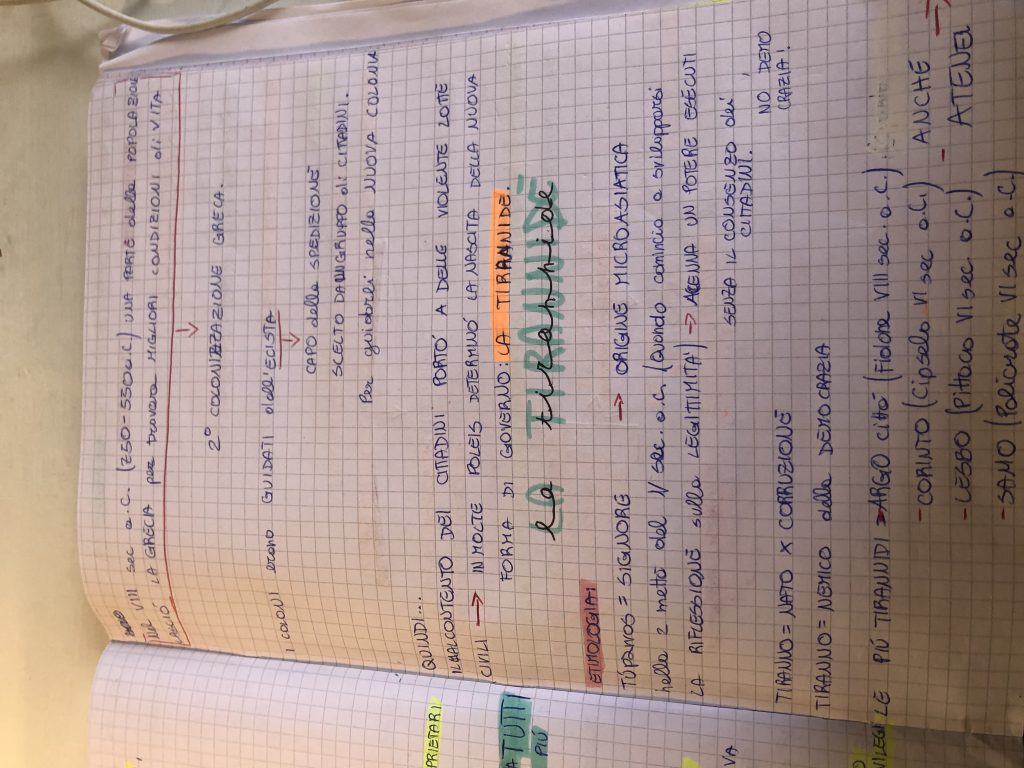 NEL VIII sec a.C. (750-550 a.C) UNA PARTE della POPOLAZIONE
LASCIÒ LA GRECIA per trovare MIGLIORI CONDIZIONI di VITA
↓
2° COLONIZZAZIONE GRECA.
I COLONI erano GUIDATI dall'ECISTA
↓
CAPO della SPEDIZIONE
SCELTO DA UN GRUPPO di CITADINI.
Per guidarli nella NUOVA COLONIA
QUINDI...
IL MALCONTENTO DEI CITADINI PORTÒ A DELLE VIOLENTE LOTTE
CIVILI → IN MOLTE POLEIS DETERMINÒ LA NASCITA DELLA NUOVA
FORMA DI GOVERNO: LA TIRANNIDE.
LA TIRANNIDE
la tirannide
ETIMOLOGIA:
TÚPANOS = SIGNORE → ORIGINE MICROASIATICA
nella 2 mettà del V sec. a.C. (Quando comincia a svilupparsi
LA RIFLESSIONE sulla LEGITIMITA') → ACENNA UN POTERE ESECUTI
SENZA IL CONSENZO dei
CITADINI.
NO, DEMO
CRAZIA!
TIRANNO = NATO X CORRUZIONE
TIRANNO = NEMICO della DEMOCRAZIA
LE PIÚ TIRANNIDI → ARGO città (Fidone VIII sec. a.C.)
- CORINTO (Cipselo VI sec a.C.) - ANCHE →
- LESBO (Pittaco VI sec a.C.) - ATENE
- SAMO (Policrate VI sec a.C)
PRIETARI
ATUITI
PIÚ
VA
VILEGI